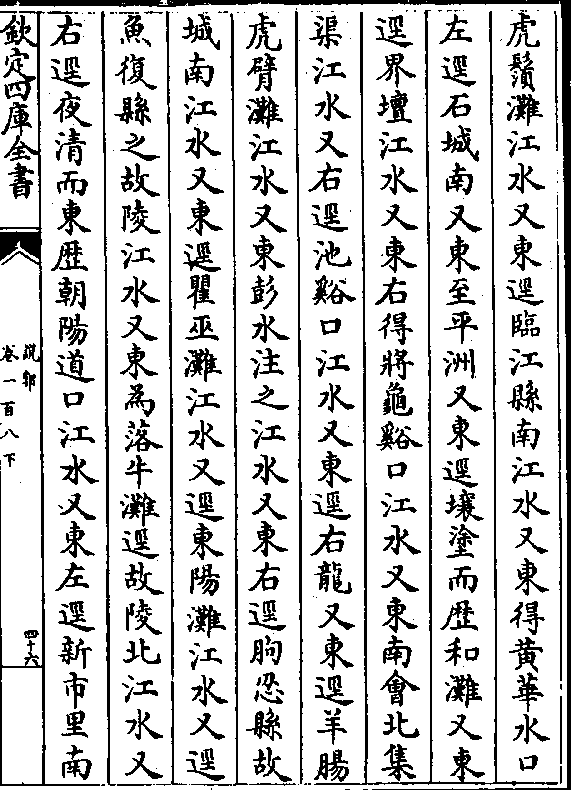 虎鬚灘江水又東逕臨江縣南江水又東得黄華水口
左逕石城南又東至平洲又東逕壤塗而歴和灘又東
逕界壇江水又東右得將龜谿口江水又東南會北集
渠江水又右逕池谿口江水又東逕右龍又東逕羊腸
虎臂灘江水又東彭水注之江水又東右逕朐忍縣故
城南江水又東逕瞿巫灘江水又逕東陽灘江水又逕
魚復縣之故陵江水又東為落牛灘逕故陵北江水又
右逕夜清而東歴朝陽道口江水又東左逕新市里南
欽定四庫全書
說郛
卷一百八下
四十六